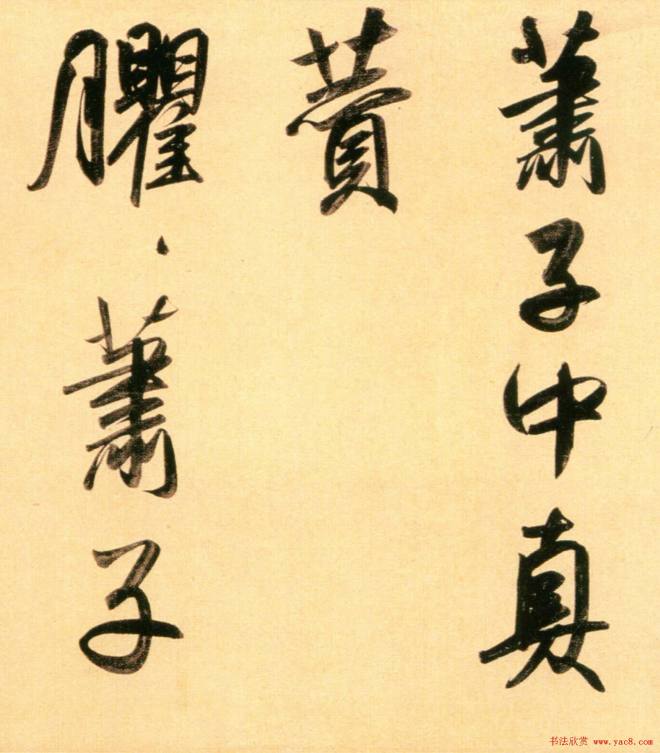 蕭子中真
賛
臞〻蕭子
书法欣赏 www.yac8.com